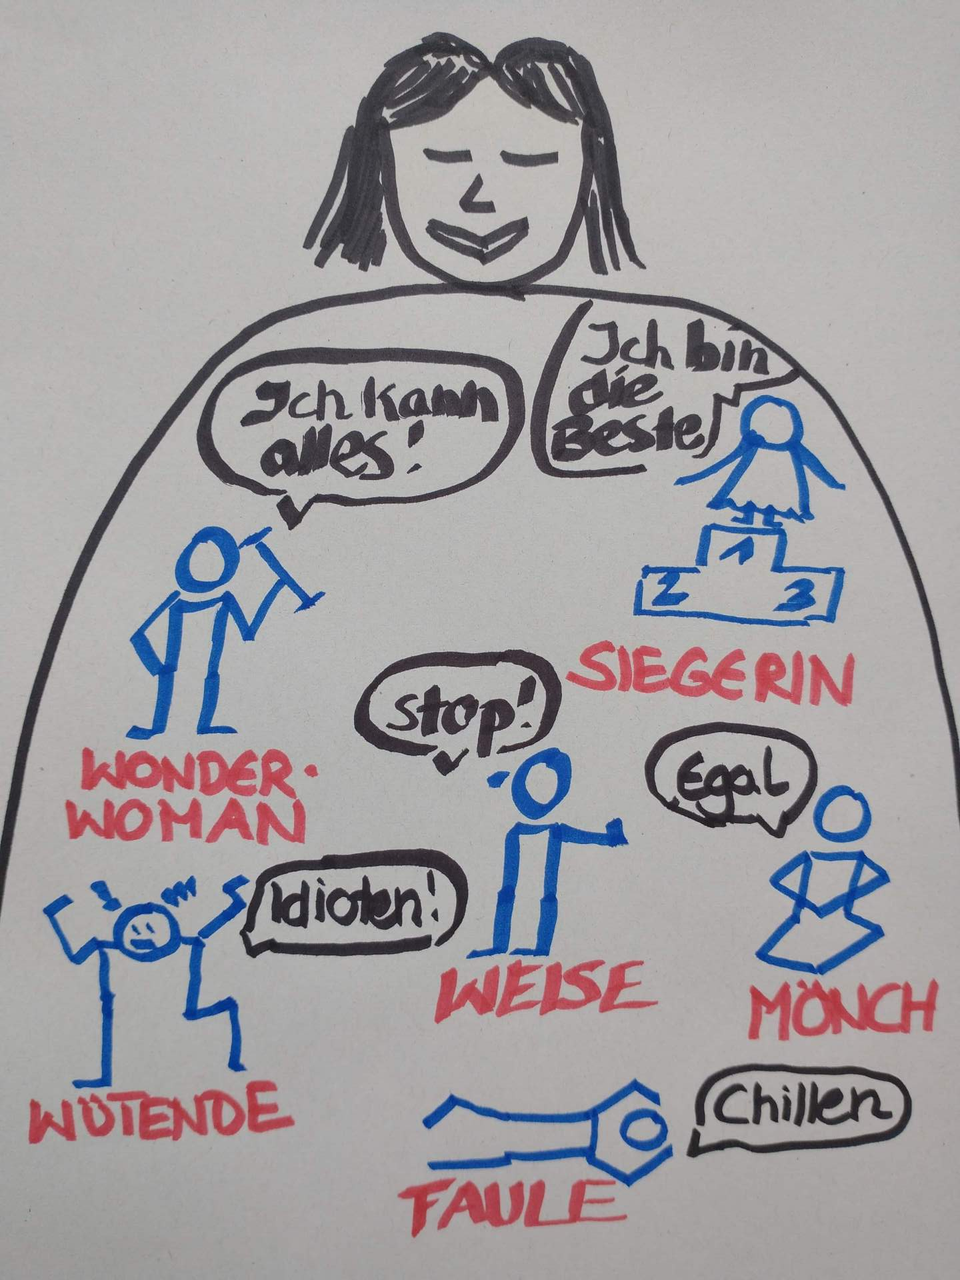 Ich kann
alles!
Ich bin
die
Beste!
2 1 3
SIEGERIN
WONDER-
WOMAN
Stop!
Egal
Idioten!
WEISE
MÖNCH
WÜTENDE
Chillen
FAULE